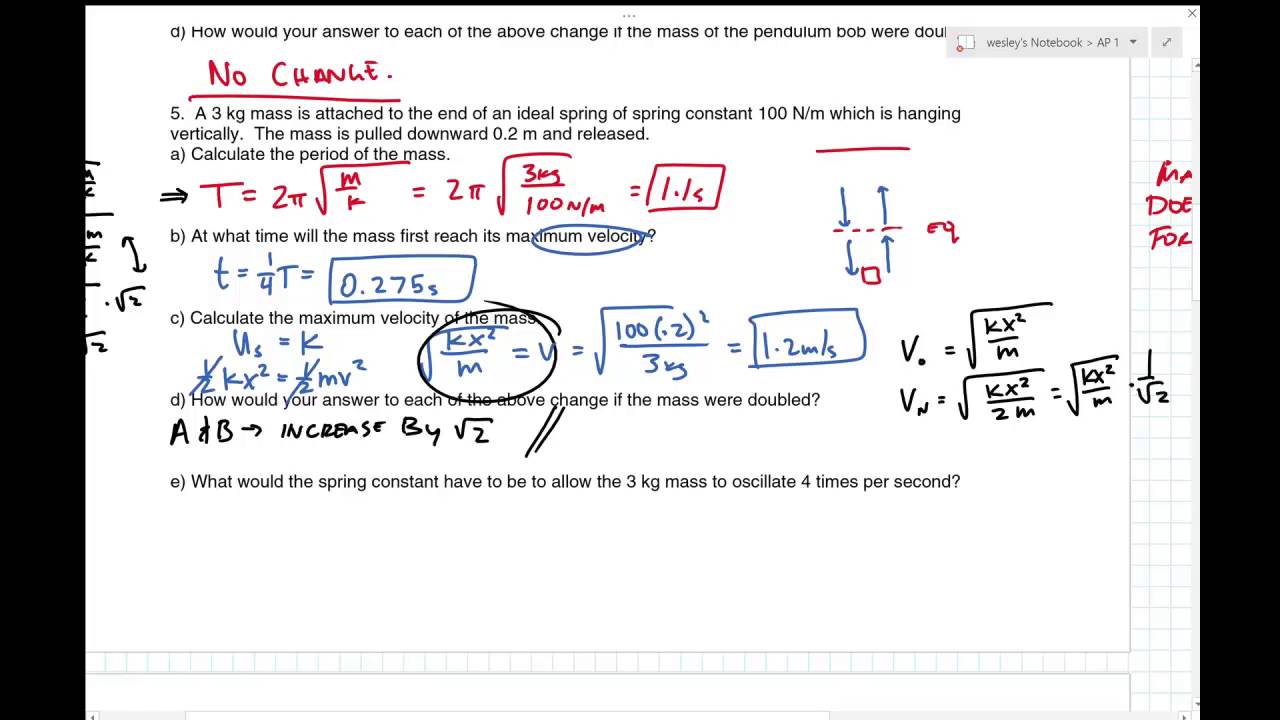 d) How would your answer to each of the above change if the mass of the pendulum bob were doul
wesley's Notebook > AP 1
NO CHANGE.
5. A 3 kg mass is attached to the end of an ideal spring of spring constant 100 N/m which is hanging
vertically. The mass is pulled downward 0.2 m and released.
a) Calculate the period of the mass.
⇒ T = 2π √(m/k) = 2π √(3kg/100 N/m) = 1.1s
eq
MA
DOE
FOR
b) At what time will the mass first reach its maximum velocity?
t = 1/4 T = 0.275s
m
k
· √2
√2
c) Calculate the maximum velocity of the mass
Us = K
½ kx² = ½ mv²
√(kx²/m) = V = √(100(.2)²/3kg) = 1.2m/s
V₀ = √(kx²/m)
V_N = √(kx²/2m) = √(kx²/m) · 1/√2
d) How would your answer to each of the above change if the mass were doubled?
A & B → INCREASE By √2
e) What would the spring constant have to be to allow the 3 kg mass to oscillate 4 times per second?